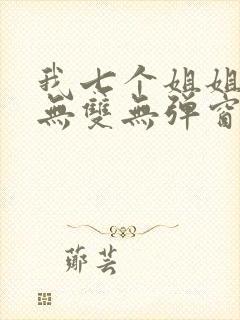 我七个姐姐
無雙無彈窗
鄭芸